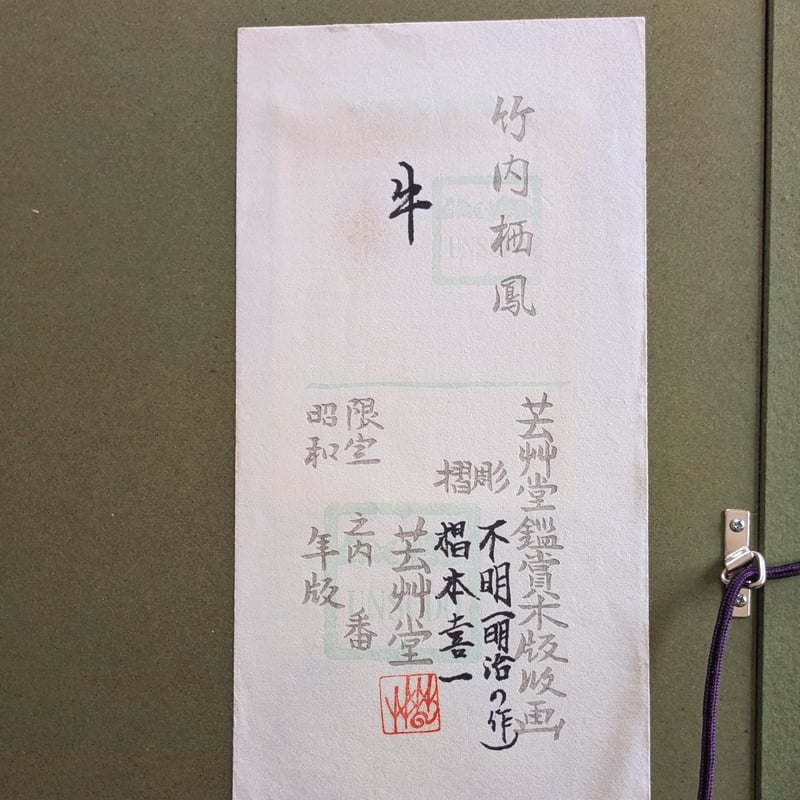 竹内栖鳳
牛
芸艸堂鑑賞木版版画
彫 不明(明治の作)
摺 椙本喜一
芸艸堂
限定 之内 番
昭和 年版
UNSODO